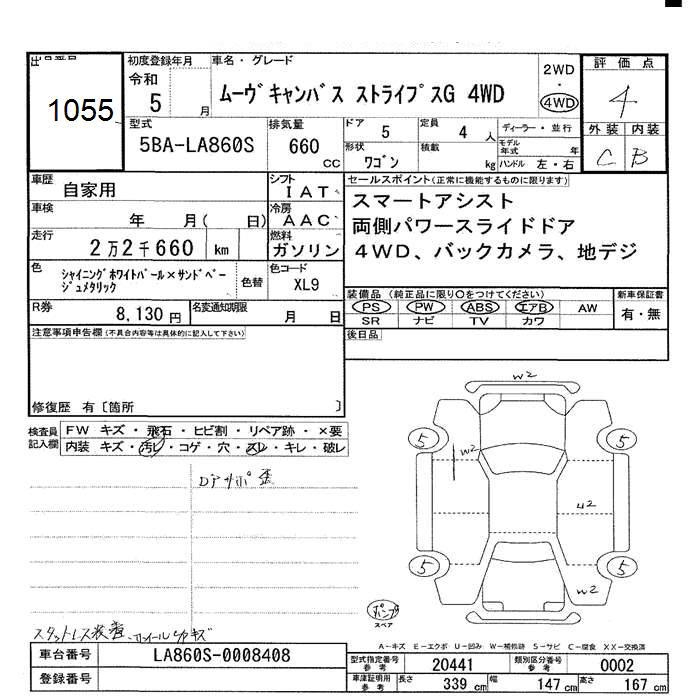 出品番号 初度登録年月 車名・グレード
1055 令和 5 月 ムーヴキャンバス ストライプスG 4WD 2WD ・ 4WD 評価点 4
型式 排気量 ドア 5 定員 4 人 ディーラー・並行 外装 内装
5BA-LA860S 660 CC 形状 ワゴン 積載 kg モデル年式 年 C B
ハンドル 左・右
車歴 自家用 シフト IAT セールスポイント(正常に機能するものに限ります)
車検 年 月( 日) 冷房 AAC スマートアシスト
両側パワースライドドア
走行 2万2千660 km 燃料 ガソリン 4WD、バックカメラ、地デジ
色 シャイニングホワイトパール×サンドベージュメタリック 色替 色コード XL9
装備品(純正品に限り○をつけてください) 新車保証書
R券 8,130円 名変通知期限 月 日 PS PW ABS エアB AW 有・無
SR ナビ TV カワ
注意事項申告欄(不具合内容等は具体的に記入して下さい) 後日品
修復歴 有〔箇所 〕
検査員記入欄 FW キズ・飛石・ヒビ割・リペア跡・×要
内装 キズ・汚レ・コゲ・穴・スレ・キレ・破レ
W2
5 5
W2
U2
5 5
W2
パンク
スペア
スタットレス装着、ホイール
A-キズ E-エクボ U-凹み W-補修跡 S-サビ C-腐食 XX-交換済
車台番号 LA860S-0008408 型式指定番号 参考 20441 類別区分番号 参考 0002
登録番号 車庫証明用 参考 長さ 339 cm 幅 147 cm 高さ 167 cm